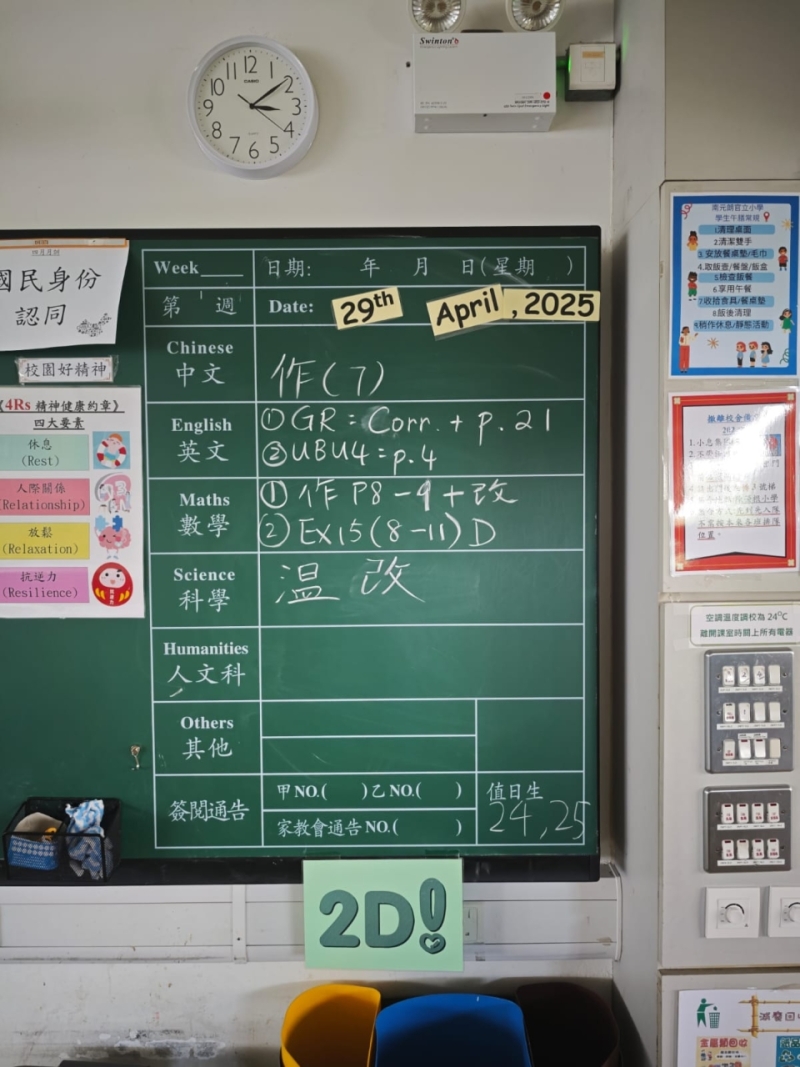 12
1
2
3
4
5
6
7
8
9
10
11
CASIO
Swinton
國民身份
認同
校園好精神
《4Rs 精神健康約章》
四大要素
休息
(Rest)
人際關係
(Relationship)
放鬆
(Relaxation)
抗逆力
(Resilience)
Week____ 日期: 年 月 日(星期 )
第 週 Date: 29th April , 2025
Chinese
中文
作(7)
English
英文
①GR = Corr. + p.21
②UBU4 = p.4
Maths
數學
① 作 P8-9+改
② Ex15(8-11)D
Science
科學
温 改
Humanities
人文科
Others
其他
簽閱通告
甲NO.( )乙NO.( )
家教會通告NO.( )
值日生
24,25
2D!
南元朗官立小學
學生午膳常規
1清理桌面
2清潔雙手
3.安放餐桌墊/毛巾
4.取飯壺/餐盤/飯盒
5檢查飯餐
6.享用午餐
7收拾食具/餐桌墊
8飯後清理
9稍作休息/靜態活動
空調溫度調校為 24°C
離開課室時關上所有電器